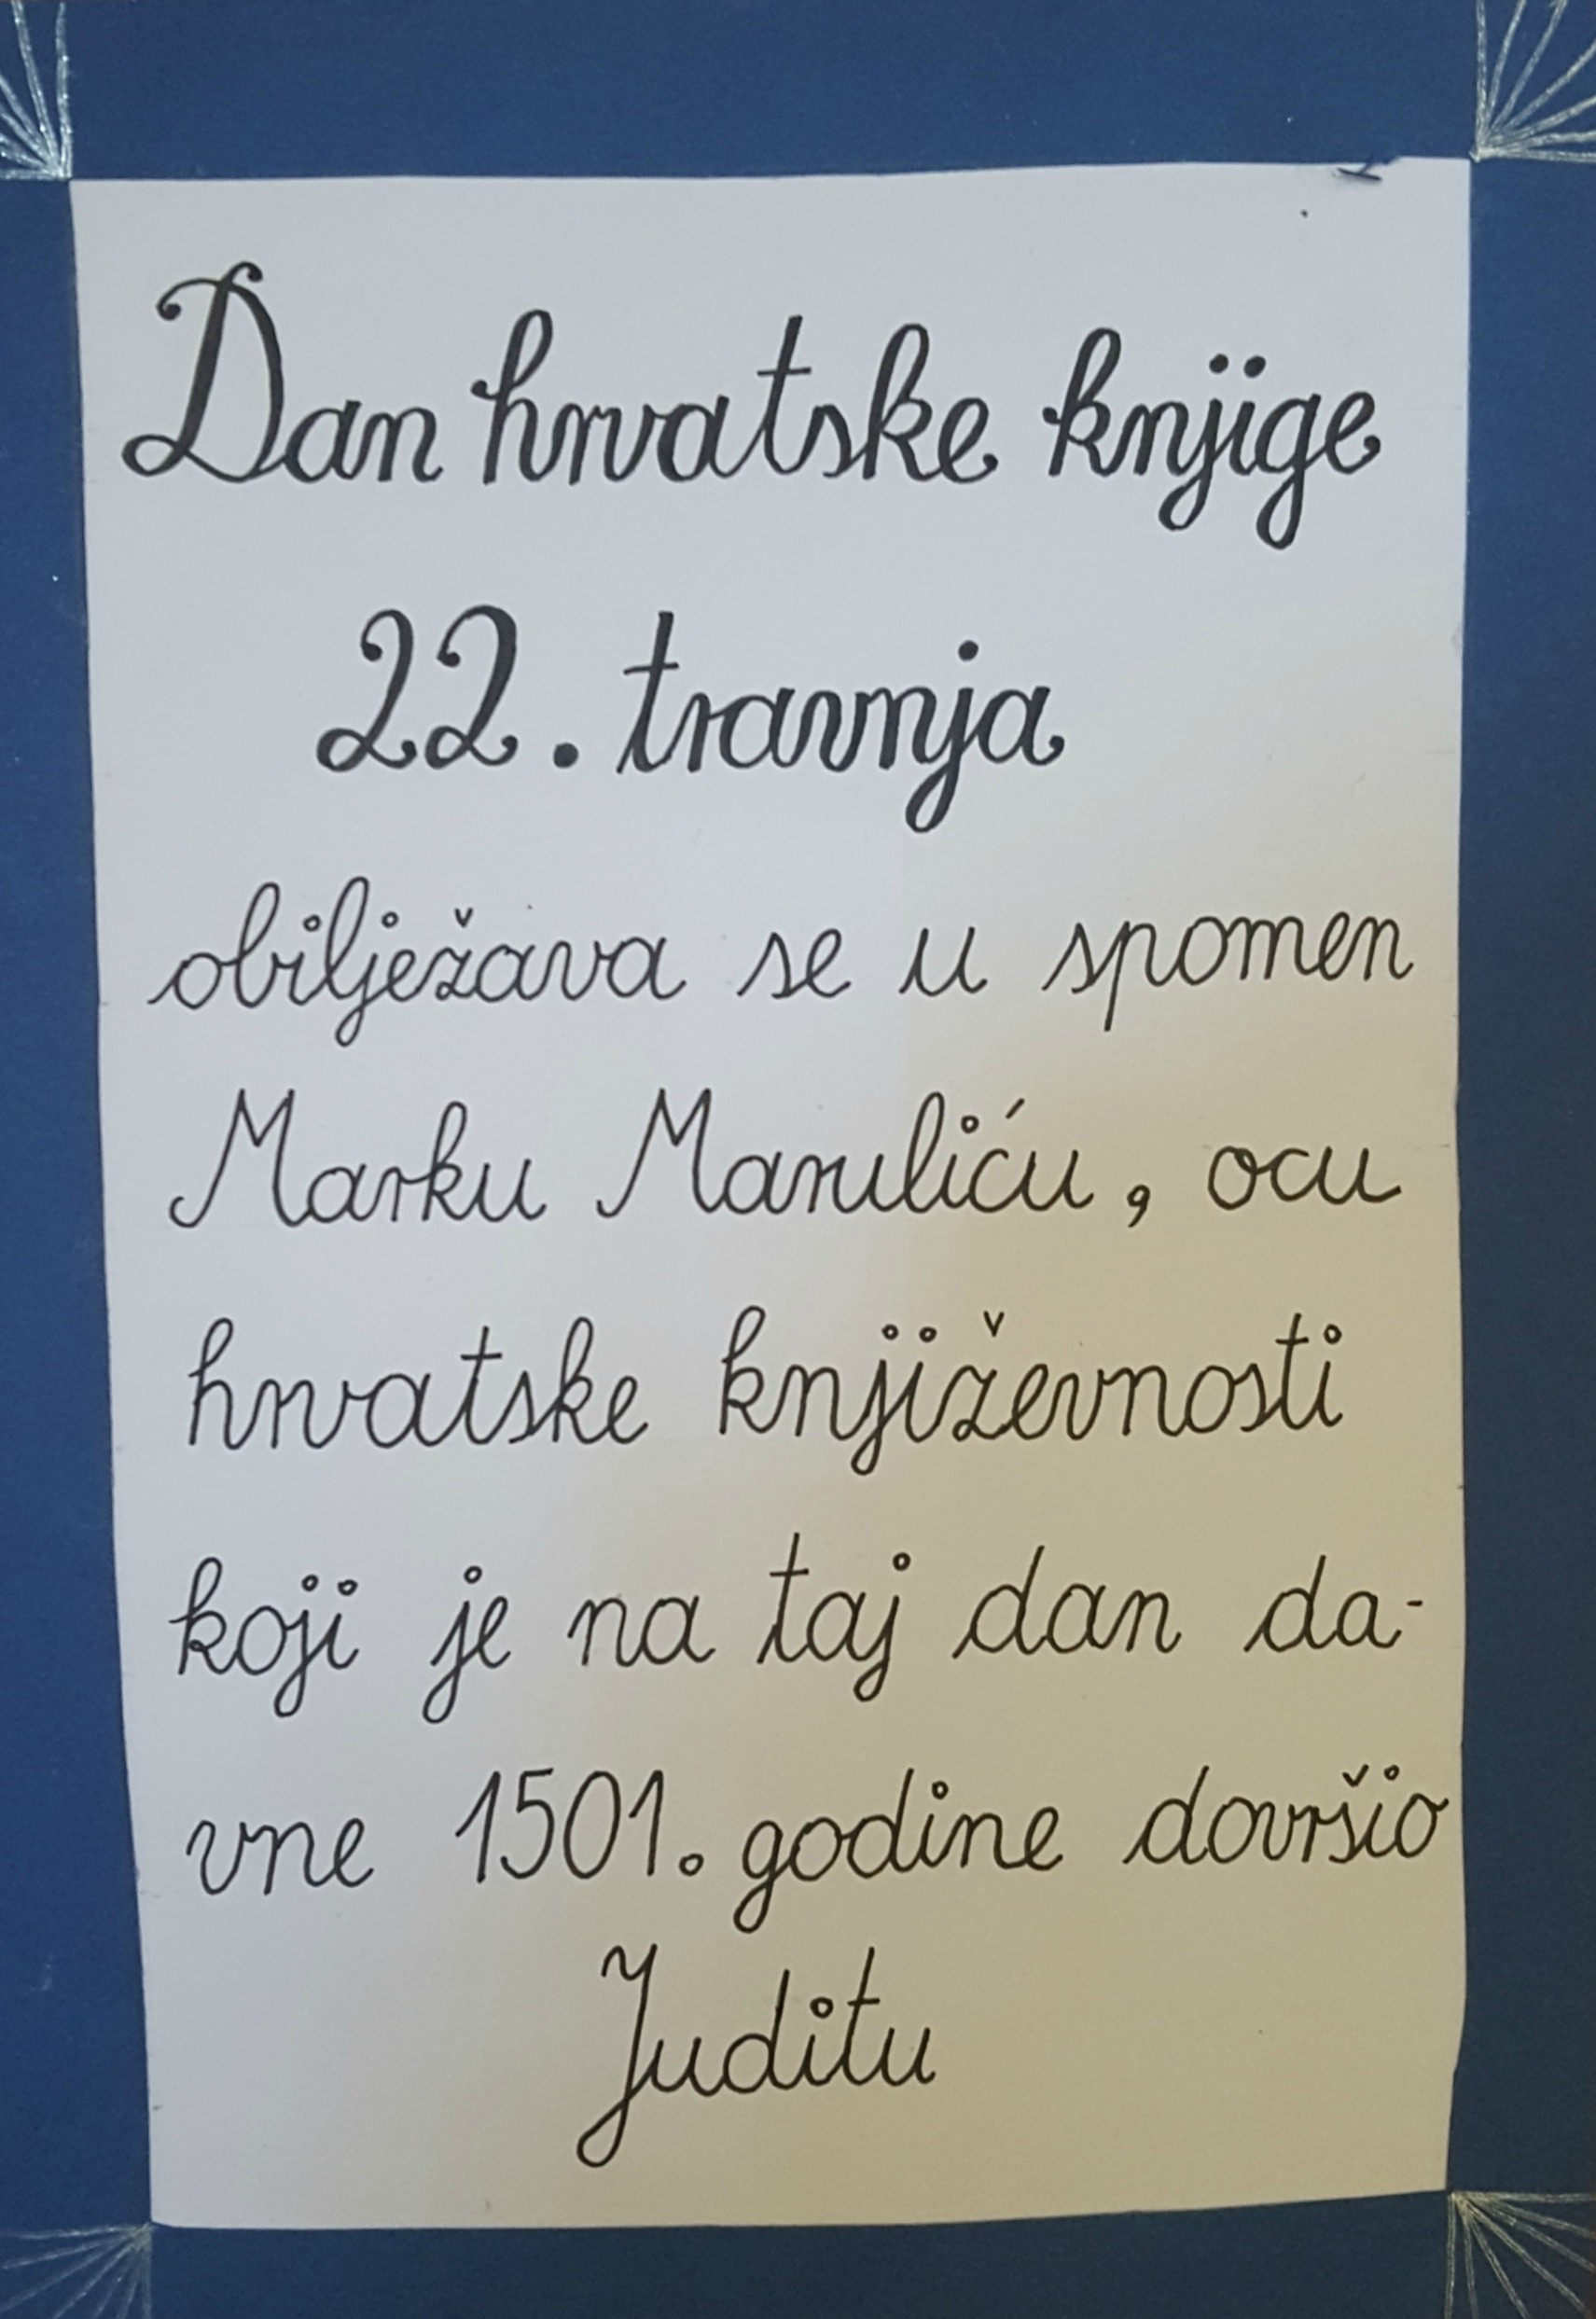 Dan hrvatske knjige
22. travnja
obilježava se u spomen
Marku Maruliću, ocu
hrvatske književnosti
koji je na taj dan da-
vne 1501. godine dovršio
Juditu